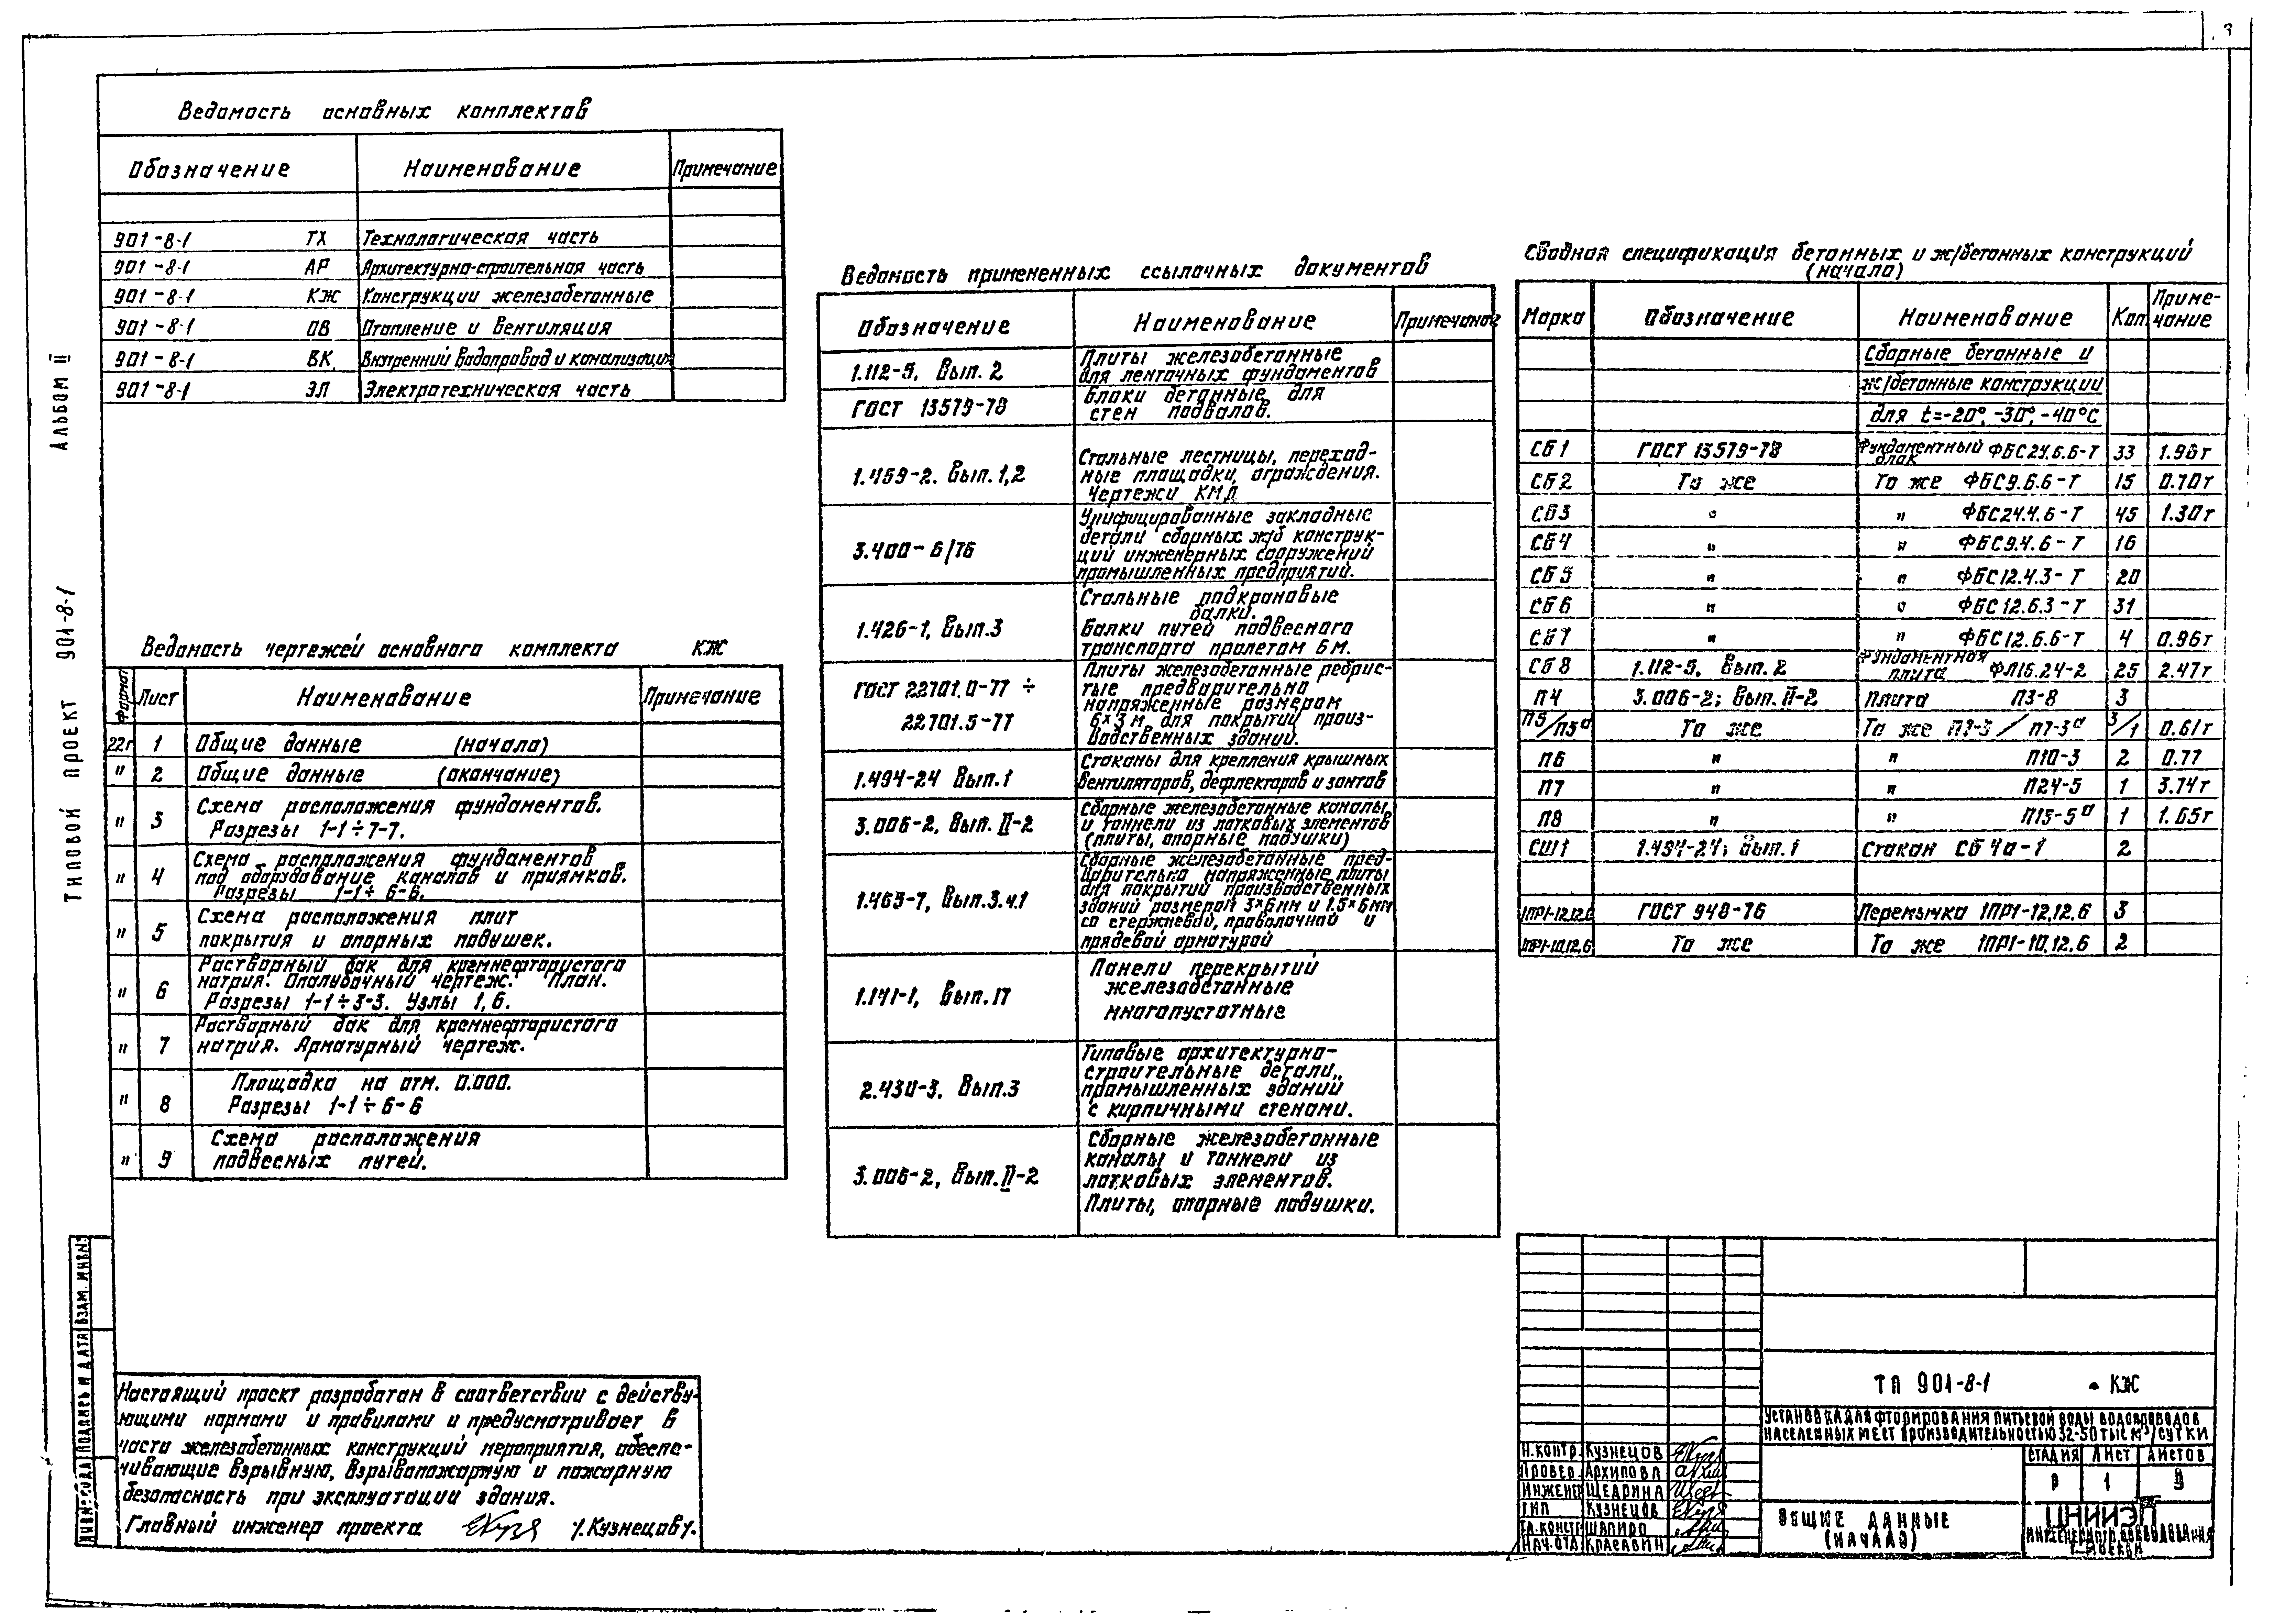 3
Альбом II
Типовой проект 901-8-1
Ведомость основных комплектов
Обозначение Наименование Примечание
901-8-1 ТХ Технологическая часть
901-8-1 АР Архитектурно-строительная часть
901-8-1 КЖ Конструкции железобетонные
901-8-1 ОВ Отопление и вентиляция
901-8-1 ВК. Внутренний водопровод и канализация
901-8-1 ЭЛ Электротехническая часть
Ведомость чертежей основного комплекта КЖ
Формат Лист Наименование Примечание
22г 1 Общие данные (начало)
" 2 Общие данные (окончание)
" 3 Схема расположения фундаментов.
Разрезы 1-1÷7-7.
" 4 Схема расположения фундаментов
под оборудование каналов и приямков.
Разрезы 1-1÷6-6.
" 5 Схема расположения плит
покрытия и опорных подушек.
" 6 Растворный бак для кремнефтористого
натрия. Опалубочный чертеж. План.
Разрезы 1-1÷3-3. Узлы 1,6.
" 7 Растворный бак для кремнефтористого
натрия. Арматурный чертеж.
" 8 Площадка на отм. 0.000.
Разрезы 1-1÷6-6
" 9 Схема расположения
подвесных путей.
Настоящий проект разработан в соответствии с действу-
ющими нормами и правилами и предусматривает в
части железобетонных конструкций мероприятия, обеспе-
чивающие взрывную, взрывопожарную и пожарную
безопасность при эксплуатации здания.
Главный инженер проекта /.Кузнецов/.
Ведомость примененных ссылочных документов
Обозначение Наименование Примечание
1.112-5, Вып. 2 Плиты железобетонные
для ленточных фундаментов
ГОСТ 13579-78 Блоки бетонные для
стен подвалов.
1.459-2. Вып.1,2 Стальные лестницы, переход-
ные площадки, ограждения.
Чертежи КМД
3.400-6/76 Унифицированные закладные
детали сборных ж/б конструк-
ций инженерных сооружений
промышленных предприятий.
1.426-1, Вып.3 Стальные подкрановые
балки.
Балки путей подвесного
транспорта пролетом 6м.
ГОСТ 22701.0-77 ÷
22701.5-77
Плиты железобетонные ребрис-
тые предварительно
напряженные размером
6×3м для покрытий произ-
водственных зданий.
1.494-24 Вып.1 Стаканы для крепления крышных
вентиляторов, дефлекторов и зонтов
3.006-2, Вып. II-2 Сборные железобетонные каналы,
и тоннели из лотковых элементов
(плиты, опорные подушки)
1.465-7, Вып.3.ч.1 Сборные железобетонные пред-
варительно напряженные плиты
для покрытий производственных
зданий размером 3×6мм и 1.5×6мм
со стержневой, проволочной и
прядевой арматурой
1.141-1, Вып.17 Панели перекрытий
железобетонные
многопустотные
2.430-3, Вып.3 Типовые архитектурно-
строительные детали,,
промышленных зданий
с кирпичными стенами.
3.006-2, Вып.II-2 Сборные железобетонные
каналы и тоннели из
лотковых элементов.
Плиты, опорные подушки.
Сводная спецификация бетонных и ж/бетонных конструкций
(начало)
Марка Обозначение Наименование Кол. Приме-
чание
Сборные бетонные и
ж/бетонные конструкции
для t=-20°, -30°, -40°С
СБ1 ГОСТ 13579-78 Фундаментный блок ФБС24.6.6-Т 33 1.96т
СБ2 То же То же ФБС9.6.6-Т 15 0.70т
СБ3 " " ФБС24.4.6-Т 45 1.30т
СБ4 " " ФБС9.4.6-Т 16
СБ5 " " ФБС12.4.3-Т 20
СБ6 " " ФБС12.6.3-Т 31
СБ7 " " ФБС12.6.6-Т 4 0.96т
СБ8 1.112-5, Вып. 2 Фундаментная плита ФЛ16.24-2 25 2.47т
П4 3.006-2; Вып. II-2 Плита П3-8 3
П5/П5а То же То же П7-3 / П7-3а 3/1 0.61т
П6 " " П10-3 2 0.77
П7 " " П24-5 1 3.74т
П8 " " П15-5а 1 1.65т
СШ1 1.494-24; Вып.1 Стакан СБ4а-1 2
1ПР1-12.12.6 ГОСТ 948-76 Перемычка 1ПР1-12,12.6 3
1ПР1-10.12.6 То же То же 1ПР1-10.12.6 2
ТП 901-8-1 - КЖ
Установка для фторирования питьевой воды водопроводов
населенных мест производительностью 32-50 тыс м³/сутки
Н.контр. Кузнецов
Провер. Архипова
Инженер Щедрина
ГИП Кузнецов
Гл.констр Шапиро
Нач.отд Красавин
Стадия Лист Листов
Р 1 9
Общие данные
(начало)
ЦНИИЭП
инженерного оборудования
г. Москва
Инв.№ подл. Подпись и дата Взам. инв.№